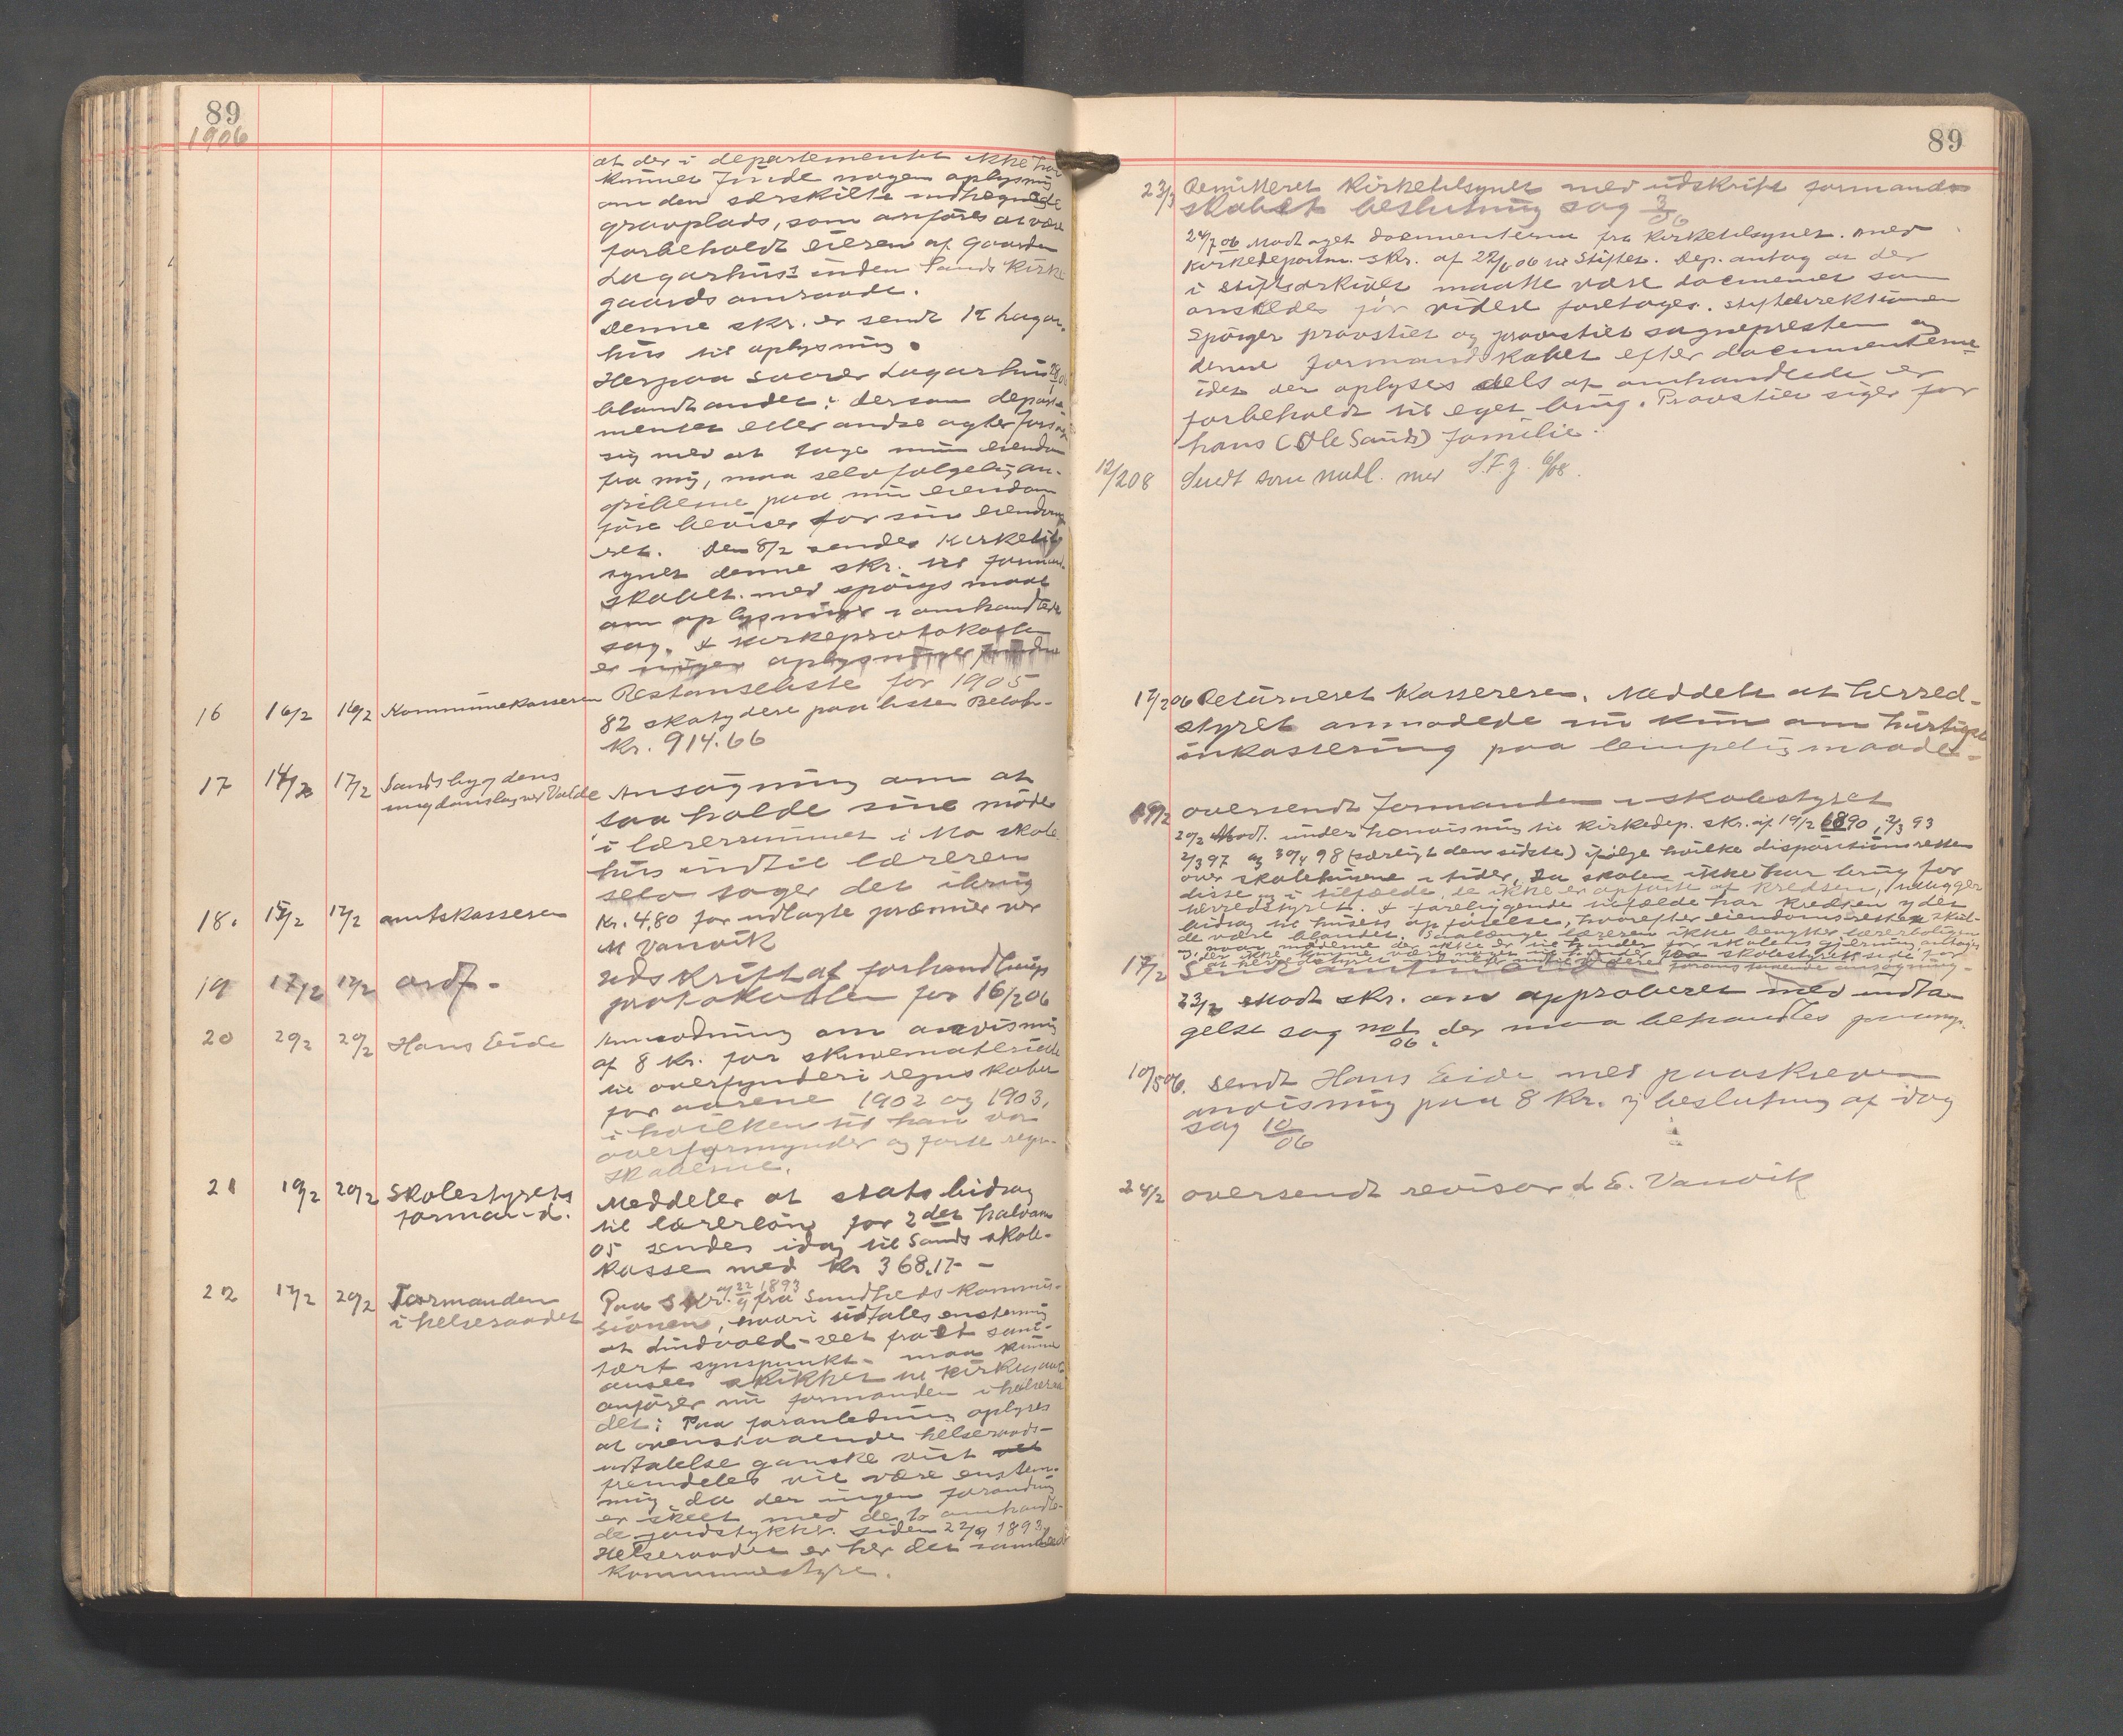 89
1906
at der i departementet ikke har
kunnet finde nogen oplysning
om den særskilte indhegnede
gravplads, som anføres at være
forbeholdt eieren af gaarden
Lagarhus inden Sands kirke
gaards omraade.
Denne skr. er sendt K Lagar-
hus til oplysning.
Herpaa svarer Lagarhus
blandt andet: dersom departe-
mentet eller andre agter
sig med at tage min eiendom
fra mig, maa selvfølgelig an-
griberne paa min eiendom
føre beviser for sin eiendoms
ret. Den 8/2 sendes kirketil
synet denne skr. til formand-
skabet med spørgsmaal
om oplysninger i omhandlede
sag. I kirkeprotokollen
er ingen oplysninger
16 16/2 16/2 Kommunekasseren Restanseliste for 1905
82 skatydere paa listen Beløb-
Kr. 914.66
17 14/2 17/2 Sandsbygdens
ungdomslag ved Valde Ansøgning om at
faa holde sine møder
i lærerrummet i Mo skole
hus indtil læreren
selv tager det ibrug
18. 15/2 17/2 amtskasseren Kr. 4,80 for udlagte præmier ved
M Vanvik
19 17/2 17/2 ordf. Udskrift af forhandlings
protokollen for 16/2 06
20 20/2 20/2 Hans Eide Anmodning om anvisning
af 8 kr. for skrivemateriell
til overfynderi regnskaber
for aarene 1902 og 1903,
i hvilken tid han var
overformynder og førte regn-
skaberne.
21 19/2 20/2 Skolestyrets
formand. Meddeler at statsbidrag
til lærerløn for 2det halvaar
05 sendes idag til Sands skole-
kasse med Kr 368,17 -
22 17/2 20/2 Formanden
i helseraadet Paa Skr. af 22/9 1893 fra Sundheds kommis-
sionen, hvori udtales enstemmig
at Lindvold - seet fra et sani-
tært synspunkt - maa kunne
ansees skikket til kirkegaard
anfører nu formanden i helseraa
det: Paa foranledning oplyses
at ovenstaaende helseraads-
udtalelse ganske vist
fremdeles vil være enstem-
mig, da der ingen forandring
er skeet med de to omhandle-
de jordstykker siden 22/9 1893.
Helseraadet er her det samlede
Kommunestyre.
89
23/3 Remitteret Kirketilsynet med udskrift formand
skabets beslutning sag 3/06
24/7 06 Modtaget documenterne fra Kirketilsynet med
Kirkedepartm. skr. af 22/6 06 til Stiftet. Dep. antog at der
i stiftsarkivet maatte være documenter som
ønskedes før videre foretages. Stiftsdirektionen
spørger provstiet og provstiet sognepresten og
denne formandskabet efter documenterne
idet der oplyses dels at omhandlede er
forbeholdt til eget brug. Provstiet siger for
hans (Ole Sands) familie.
12/2 08 Sendt som vedl. med S.F.g. 6/08.
17/2 06 Returneret kassereren. Meddelt at herred-
styret anmodede nu kun om hurtigst
inkassering paa lempelig maade.
19/2 oversendt formanden i skolestyret
20/2 Modt. under henvisning til kirkedep. skr. af 19/2 90, 2/3 93
2/3 97 og 30/4 98 (særligt den sidste) ifølge hvilke dispositionsretten
over skolehusene i tider, da skolen ikke har brug for
disse og i tilfælde de ikke er opførte af kredsen, tillægger
herredstyret. I foreliggende tilfælde har kredsen ydet
bidrag til husets opførelse, hvorefter eiendomsretten skul-
de være blandet. Saalænge læreren ikke benytter lærerboligen
og naar møderne der ikke er til hinder for skolens gjerning antages
17/2 Sendt amtmanden
23/2 Modt skr. om approberet med undta-
gelse sag no 1/06 der maa behandles paany.
10/5 06. Sendt Hans Eide med paaskreven
anvisning paa 8 kr. ij beslutning af idag
sag 10/06
24/2 oversendt revisor L E. Vanvik